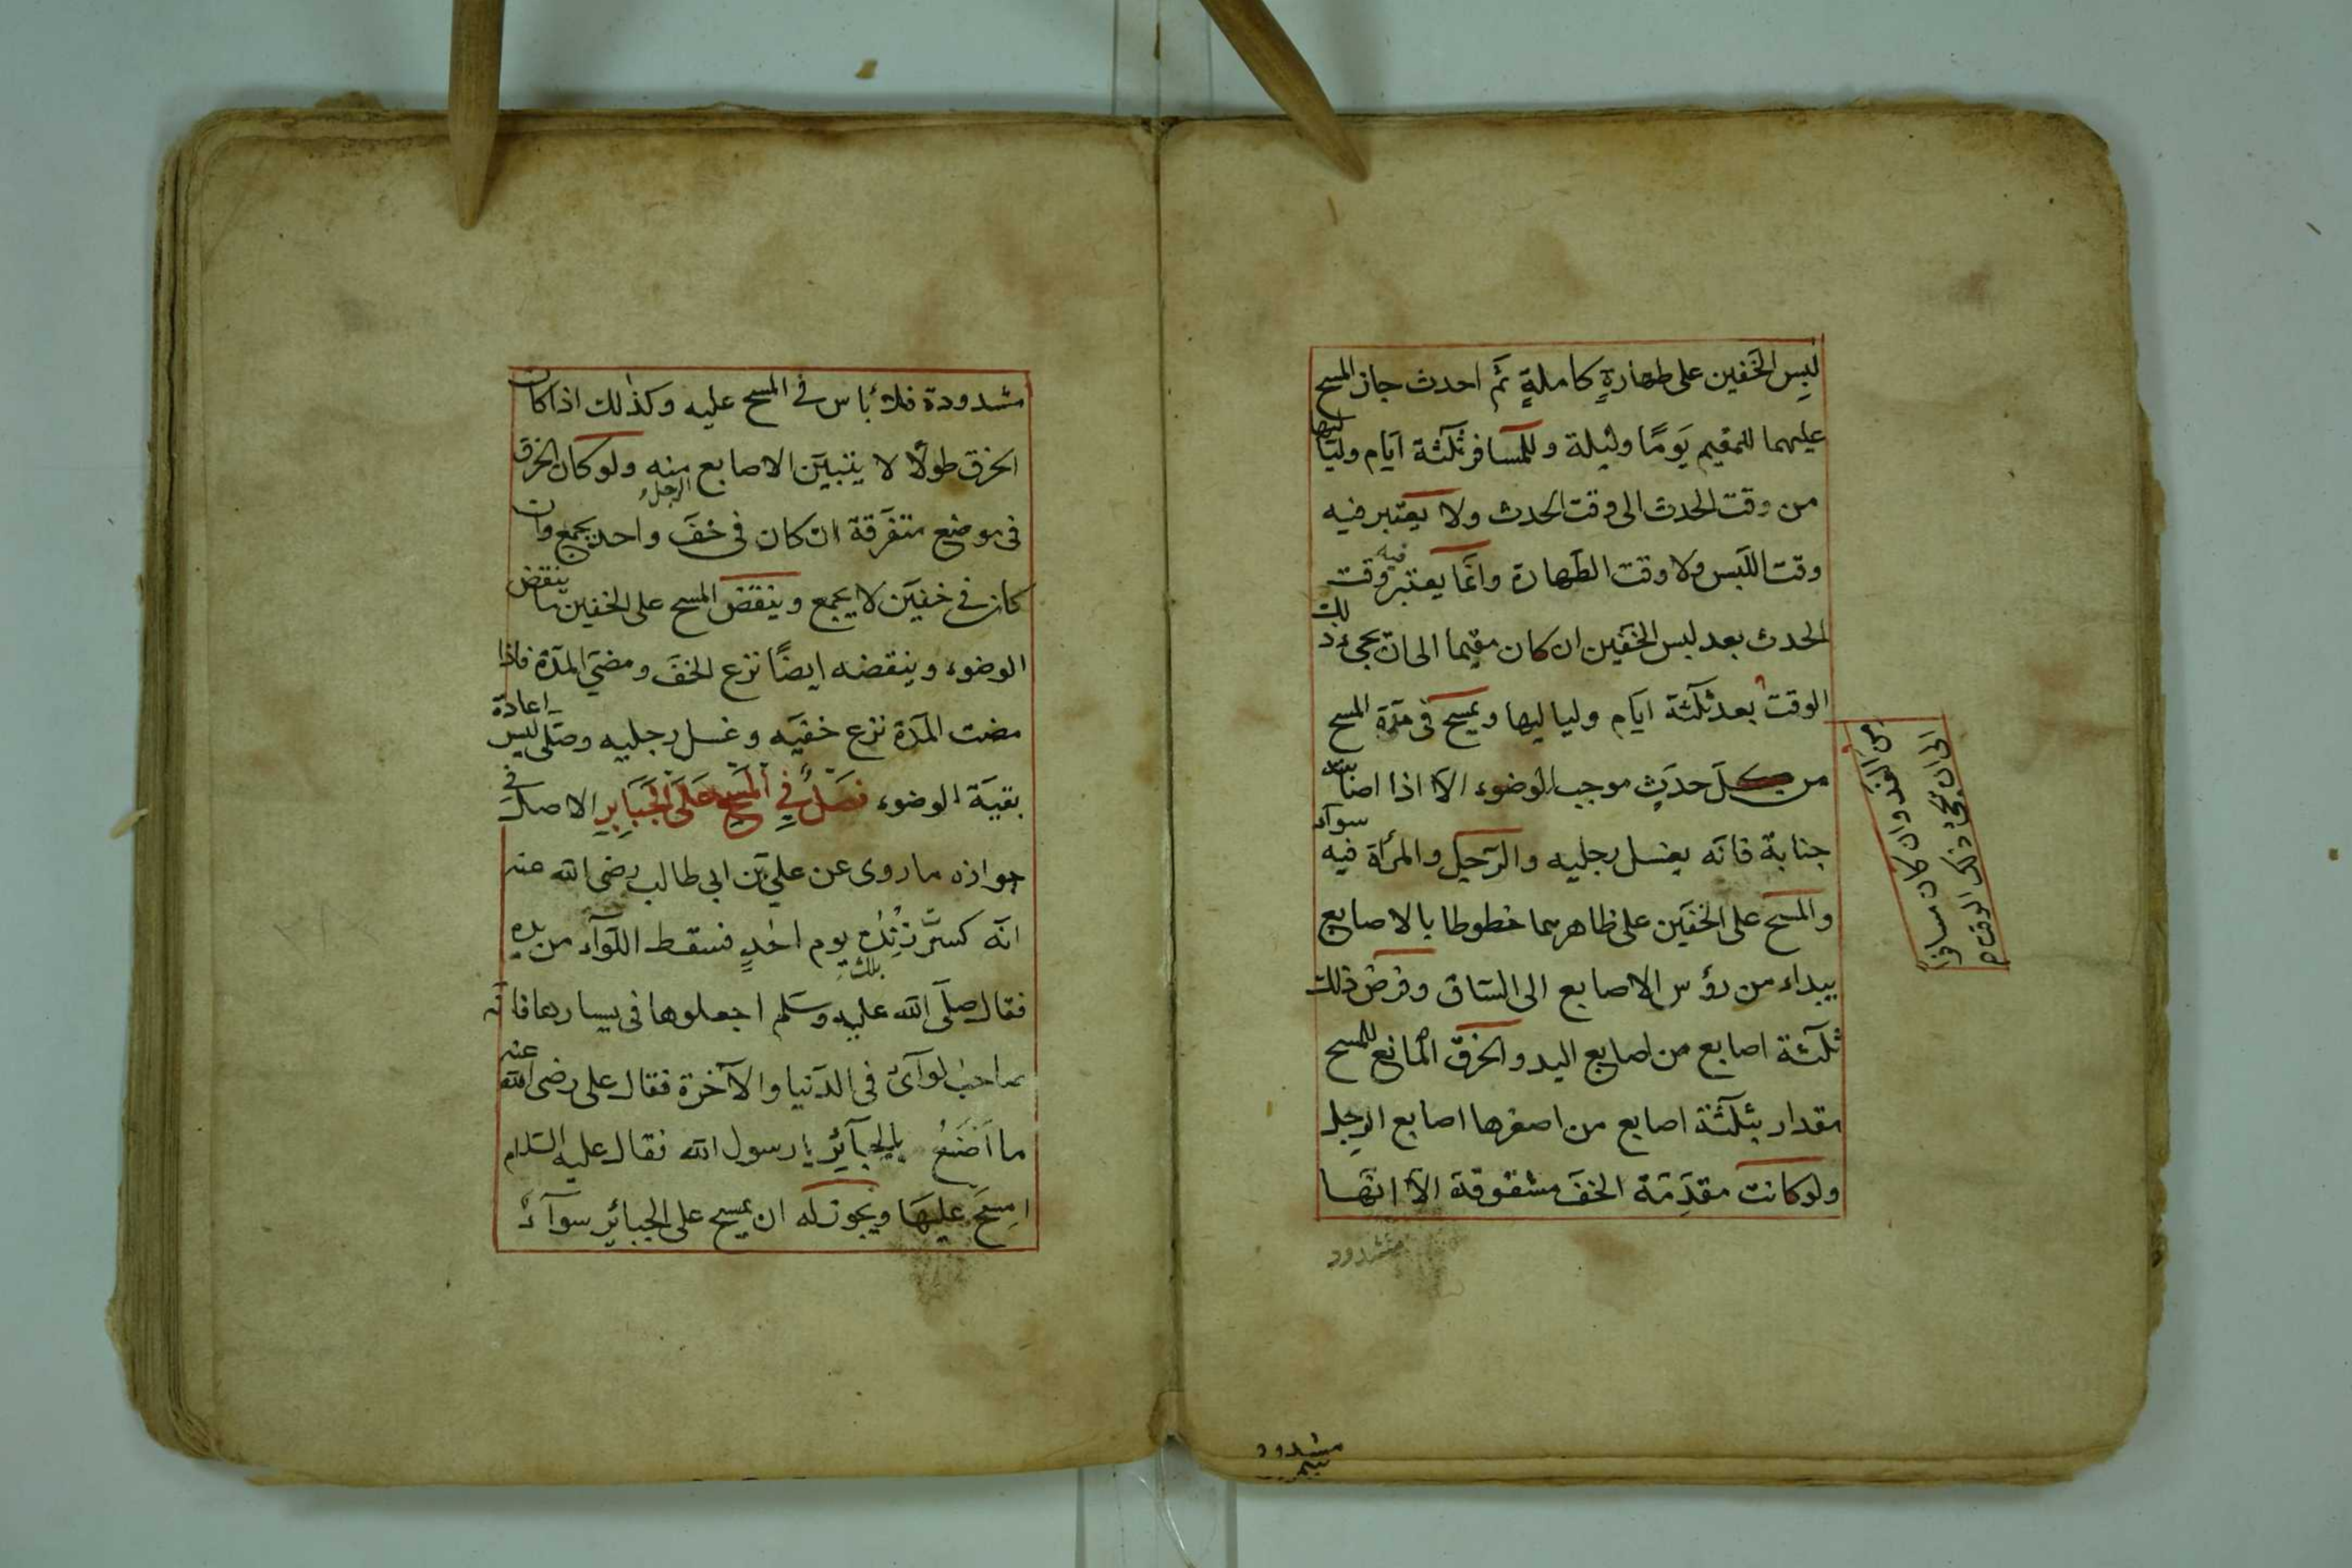 لبس الخفين على طهارةٍ كاملةٍ ثمّ احدث جاز المسح
عليهما للمقيم يومًا وليلة وللمسافر ثلثة ايّام ولياليها
من وقت الحدث الى وقت الحدث ولا يعتبر فيه
وقت اللبس ولا وقت الطّهارة وانّما يعتبر فيه وقت
الحدث بعد لبس الخفّين ان كان مقيما الى ان يجئ ذلك
الوقت بعد ثلثة ايّام ولياليها ويمسح فى مدّة المسح
من كلّ حدثٍ موجب الوضوء الّا اذا اصابته
جنابة فانّه يغسل رجليه والرّجل والمرأة فيه سوآء
والمسح على الخفّين على ظاهرهما خطوطا بالاصابع
يبداء من رؤس الاصابع الى السّاق وفرض ذلك
ثلثة اصابع من اصابع اليد والخرق المانع للمسح
مقدار بثلثة اصابع من اصغرها اصابع الرجل
ولو كانت مقدّمة الخفّ مشقوقة الّا انّها
مشدود
من الغد وان كان مسافرًا
الى ان يجئ ذلك الوقت
مشدود
مشدودة فلا بأس فى المسح عليه وكذلك اذا كان
الخرق طولًا لا يتبيّن الاصابع منه ولو كان الخرق
الرجل
فى موضع متفرّقة ان كان فى خفّ واحد يجمع وان
كان فى خفين لا يجمع وينقض المسح على الخفين ما ينقض
الوضوء وينقضه ايضًا نزع الخفّ ومضيّ المدّة فاذا
مضت المدّة نزع خفّيه وغسل رجليه وصلّى ليس اعادة
بقيّة الوضوء فصلٌ في المسح على الجبايرِ الاصل فى
جوازه ما روى عن عليّ بن ابى طالب رضى الله عنه
انّه كسرَ زنده يوم احدٍ فسقط اللوآء من يده
فقال صلّى الله عليه وسلّم اجعلوها فى يسارها فانّه
صاحب لوآئ فى الدّنيا والآخرة فقال على رضى الله عنه
ما اصنع بالجبآئر يا رسول الله فقال عليه السّلام
امسح عليها ويجوز له ان يمسح على الجبائر سوآءً